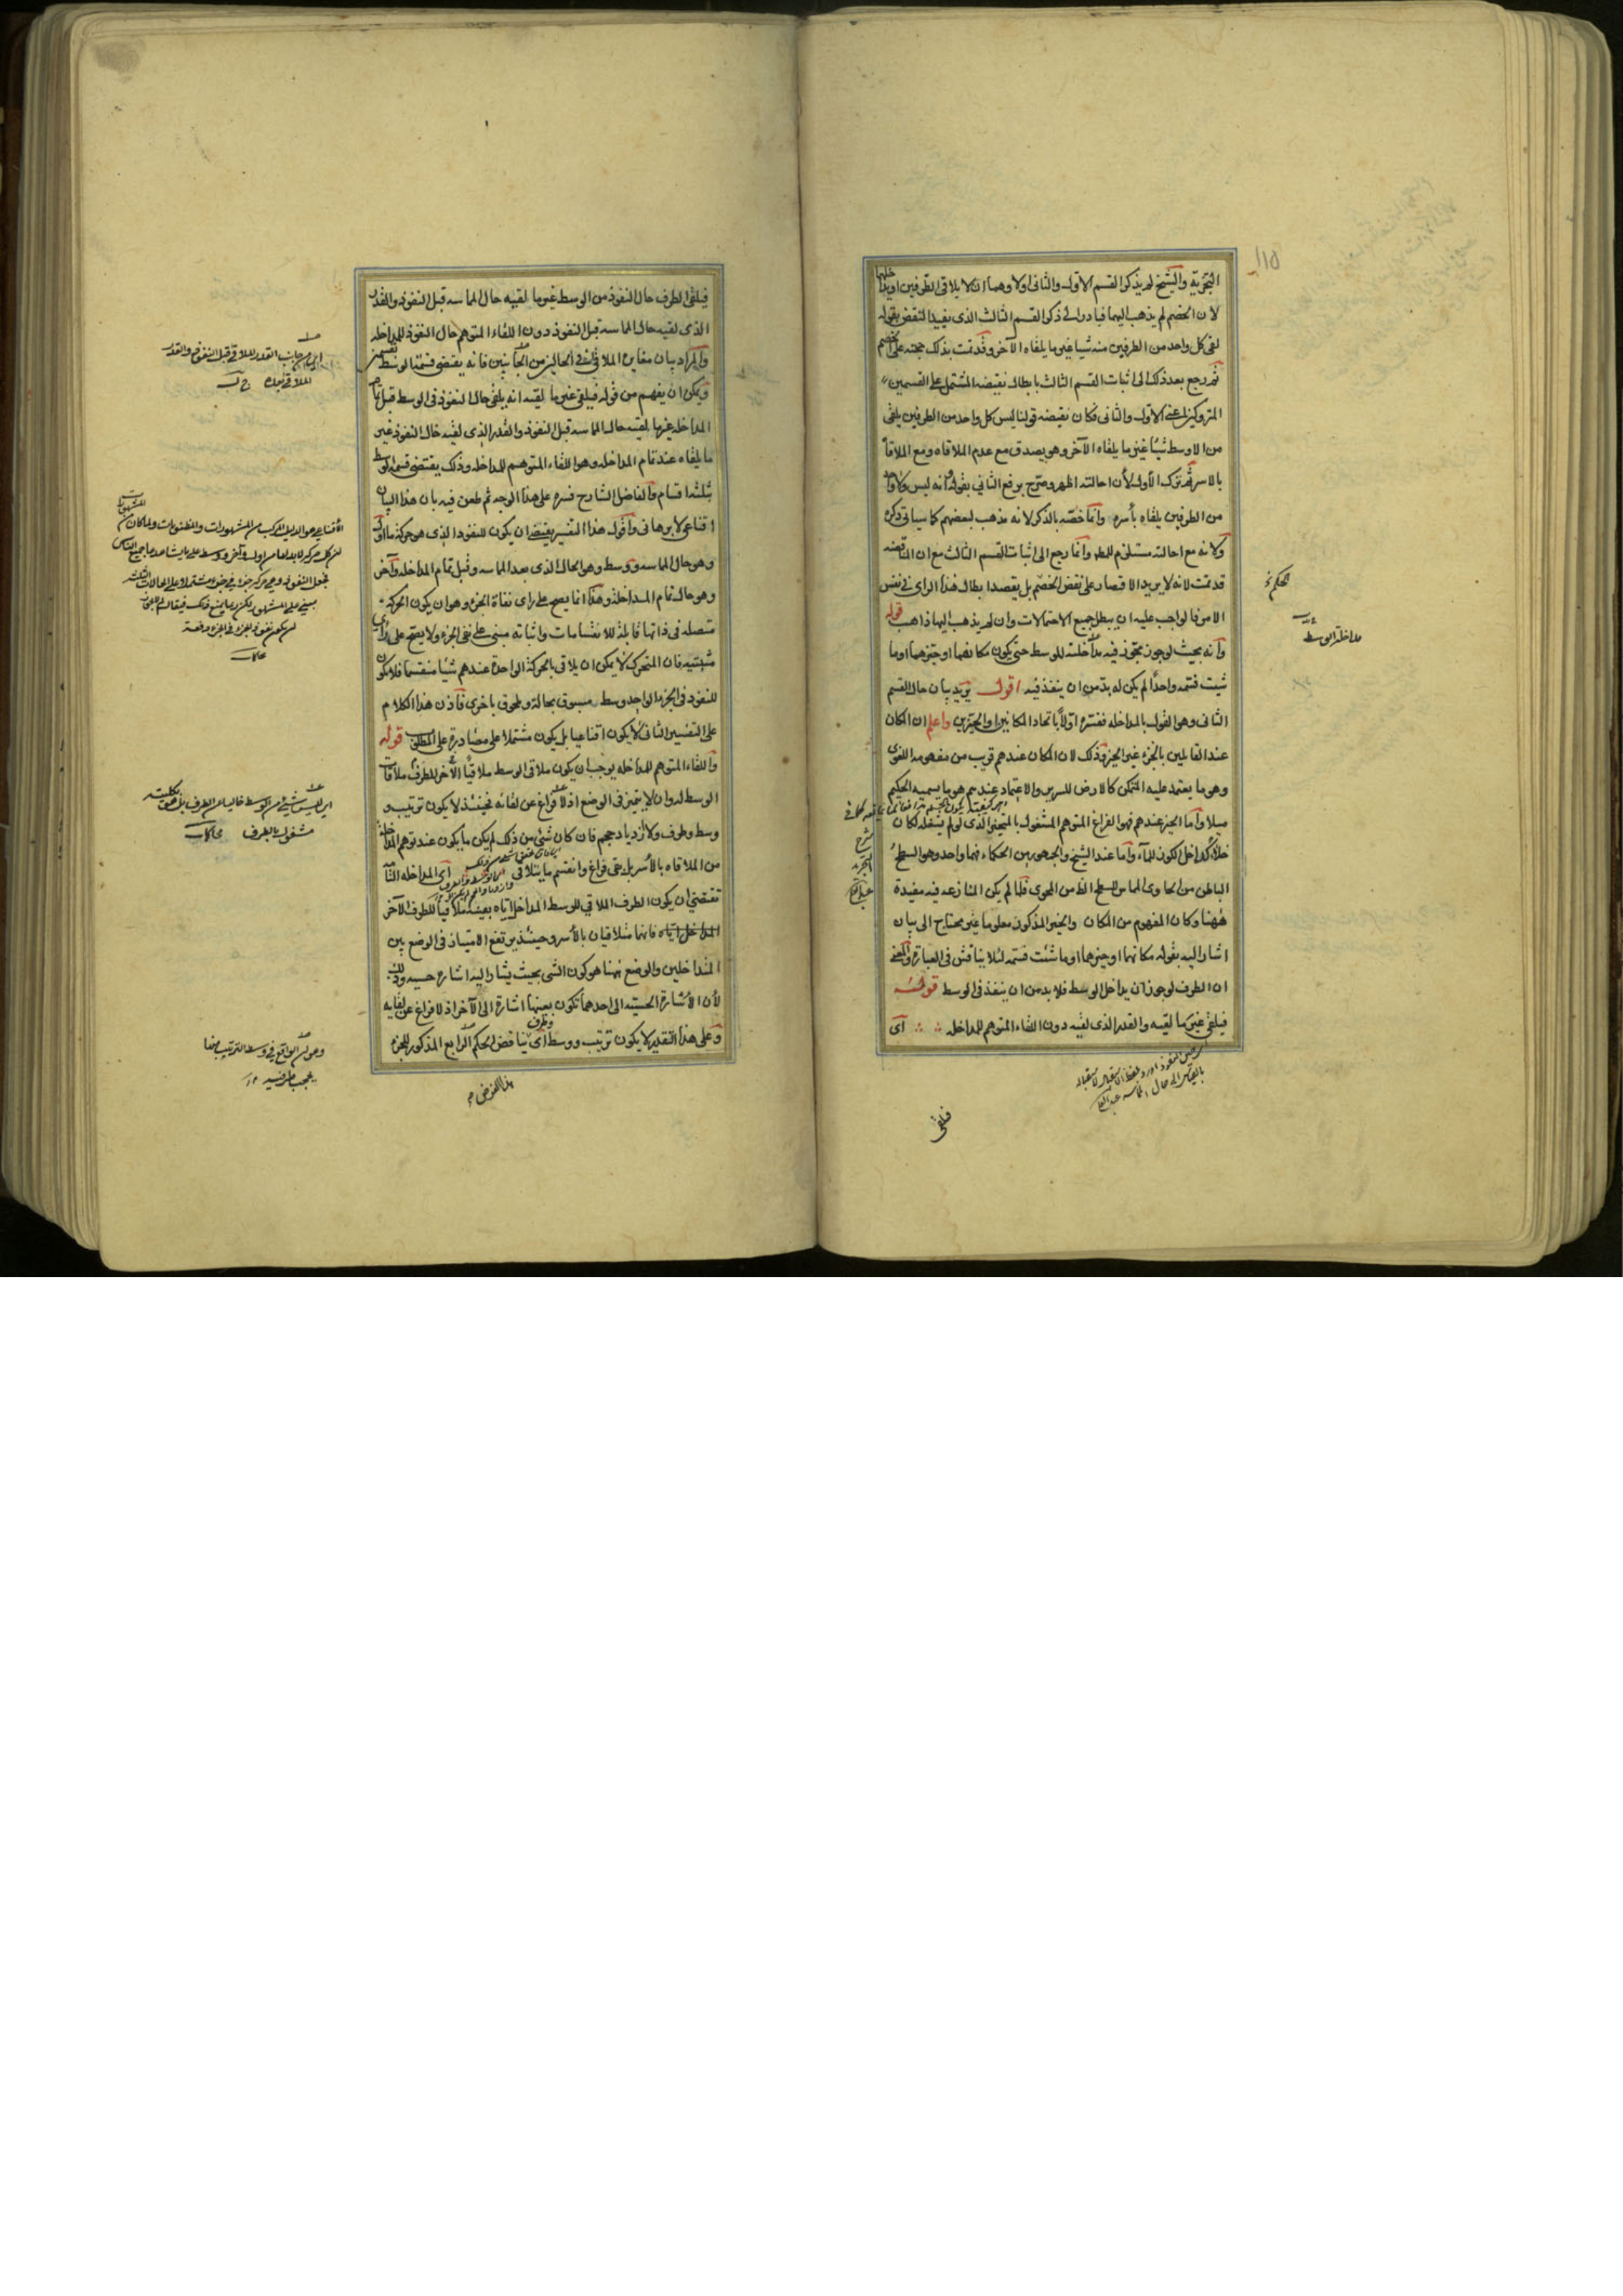 التجزية والشيخ لم يذكر القسم الاول والثانى اولا وهما ان لا يلاقى الطرفين او يداخلها
لان الخصم لم يذهب اليهما فبادر الى ذكر القسم الثالث الذى يفيد النقض بقوله
لقى كل واحد من الطرفين منه شيا غير ما يلقاه الآخر وقد تمت بذلك حجته على الخصم
ثم رجع بعد ذلك الى اثبات القسم الثالث بابطال نقيضه المشتمل على القسمين
المتروكين اعنى الاول والثانى فكان نقيضه قولنا ليس كل واحد من الطرفين يلقى
من الاوسط شيئا غير ما يلقاه الآخر وهو يصدق مع عدم الملاقاه ومع الملاقاة
بالاسر ثم ترك الاول لأن احالته اظهر وصرح برفع الثانى بقوله وانه ليس ولا واحد
من الطرفين يلقاه بأسره وانما خصّه بالذكر لانه مذهب لبعضهم كما سياتى ذكره
ولانه مع احالته مستلزم للمط وانما رجع الى اثبات القسم الثالث مع ان المناقضه
قد تمت لانه لا يريد الاقتصار على نقض الخصم بل يقصد ابطال هذا الراى فى نفس
الامر فالواجب عليه ان يبطل جميع الاحتمالات وان لم يذهب اليها ذاهب قوله
وانه بحيث لو جوز مجوز فيه مداخلته للوسط حتى يكون مكانهما او حيزهما او ما
شيت فسمه واحدًا لم يكن له بد من ان ينفذ فيه اقول يريد بيان حال القسم
الثانى وهو القول بالمداخله ففسره اولًا باتحاد المكانين او الحيزين واعلم ان المكان
عند القايلين بالجزء غير الحيز وذلك لان المكان عندهم قريب من مفهومه اللغوى
وهو ما يعتمد عليه المتمكن كالارض للسرير والاعتماد عندهم هو ما يسميه الحكيم
ميلا واما الحيز عندهم فهو الفراغ المتوهم المشغول بالمتحيز الذى لو لم يشغله لكان
خلاءً كداخل الكوز للماء واما عند الشيخ والجمهور من الحكماء فهما واحد وهو السطح
الباطن من الحاوى المماس للسطح الظ من المحوى فلما لم يكن المنازعه فيه مفيدة
ههنا وكان المفهوم من المكان والحيز المذكور معلوما غير محتاج الى بيان
اشار اليه بقوله مكانهما او حيزهما او ما شئت فسمه لئلا يناقش فى العبارة والمعنى
ان الطرف لو جوز ان يداخل الوسط فلا بد من ان ينفذ فى الوسط قوله
فيلقى غير ما لقيه والقدر الذى لقيه دون اللقاء المتوهم للمداخله اى
فيلقى
١١٥
مداخلته الوسط
شرح
التجريد
فيلقى الطرف حال النفوذ من الوسط غير ما لقيه حال المماسه قبل النفوذ والقدر
الذى لقيه حال المماسه قبل النفوذ دون اللقاء المتوهم حال النفوذ للمداخله
والمراد بيان مغايرة الملاقى فى الحالين من الجانبين فانه يقتضى قسمة الوسط بقسمين
ويمكن ان يفهم من قوله فيلقى غير ما لقيه انه يلقى حال النفوذ فى الوسط قبل تمام
المداخله غير ما لقيه حال المماسه قبل النفوذ والقدر الذى لقيه حال النفوذ غير
ما يلقاه عند تمام المداخله وهو اللقاء المتوهم للمداخله وذلك يقتضى قسمه الوسط
بثلثه اقسام والفاضل الشارح فسره على هذا الوجه ثم طعن فيه بان هذا البيان
اقناعى لا برهانى واقول هذا التفسير يقتضى ان يكون للنفوذ الذى هو حركة ما اول
وهو حال المماسه ووسط وهو الحال الذى بعد المماسه وقبل تمام المداخله وآخر
وهو حالة تمام المداخلة وهذا انما يصح على راى نفاة الجزء وهو ان يكون الحركه
متصله فى ذاتها قابلة للانقسامات واثباته مبنى على نفى الجزء ولا يصح على راى
مثبتيه فان المتحرك لا يمكن ان يلاقى بالحركة الواحدة عندهم شيًا منقسما فلا يكون
للنفوذ فى الجزء الواحد وسط مسبوق بحالة وملحوق باخرى فاذن هذا الكلام
على التفسير الثانى لا يكون اقناعيا بل يكون مشتملا على مصادرة على المطلوب قوله
واللقاء المتوهم للمداخله يوجب ان يكون ملاقى الوسط ملاقيًا الآخر للطرف ملاقات
الوسط له وان لا يتميز فى الوضع اذ لا فراغ عن لقائه فحينئذ لا يكون ترتيب و
وسط وطرف ولا ازدياد حجم فان كان شئ من ذلك لم يكن ما يكون عند توهم المداخلة
من الملاقاه بالأسر بل بقى فراغ وانقسم ما يتلاقى اى المداخله التامة
تقتضى ان يكون الطرف الملاقى للوسط المداخل اياه بعينه ملاقيًا للطرف الآخر
المداخل اياه فانهما متلاقيان بالأسر وحينئذ يرتفع الامتياز فى الوضع بين
المتداخلين والوضع ههنا هو كون الشى بحيث يشار اليه اشاره حسيه وذلك
لأن الاشارة الحسيه الى احدهما تكون بعينها اشارة الى الآخر اذ لا فراغ عن لقايه
وعلى هذا التقدير لا يكون ترتيب ووسط وطرف اى يناقض الحكم الرابع المذكور للجزء
هذا الفرض
اى ليس شئ من الوسط خاليا عن الطرف بل هو بكليته
مشغول بالطرف محاكمات